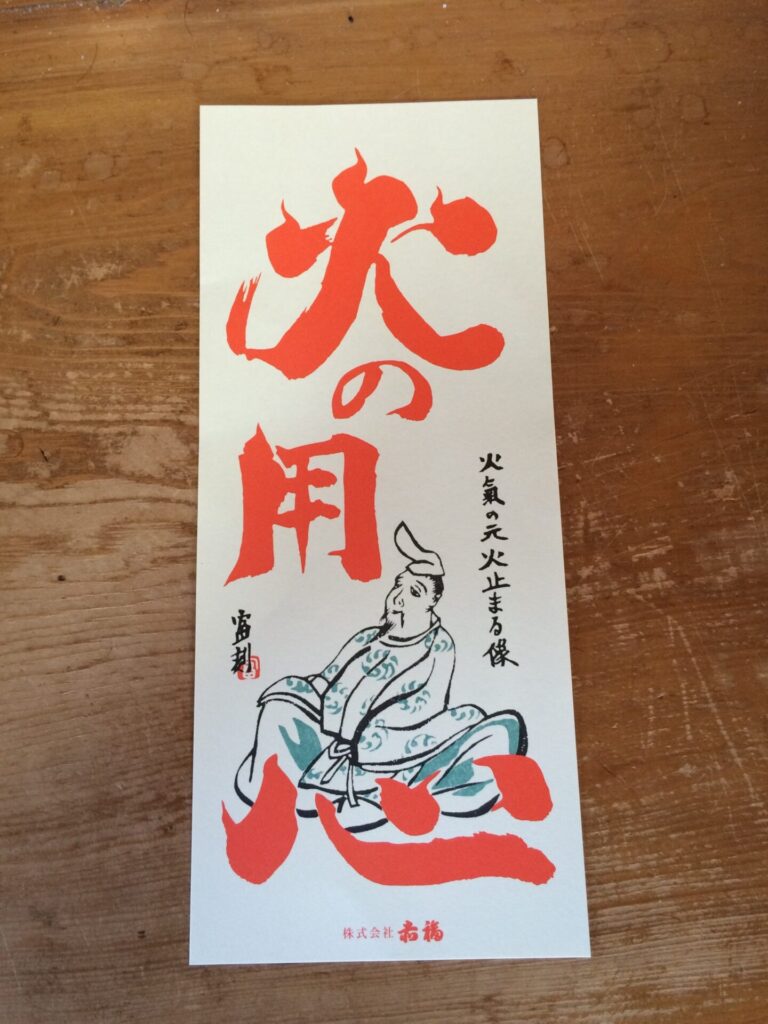 火の用心
火氣の元火止まる像
富刺
株式会社 赤福